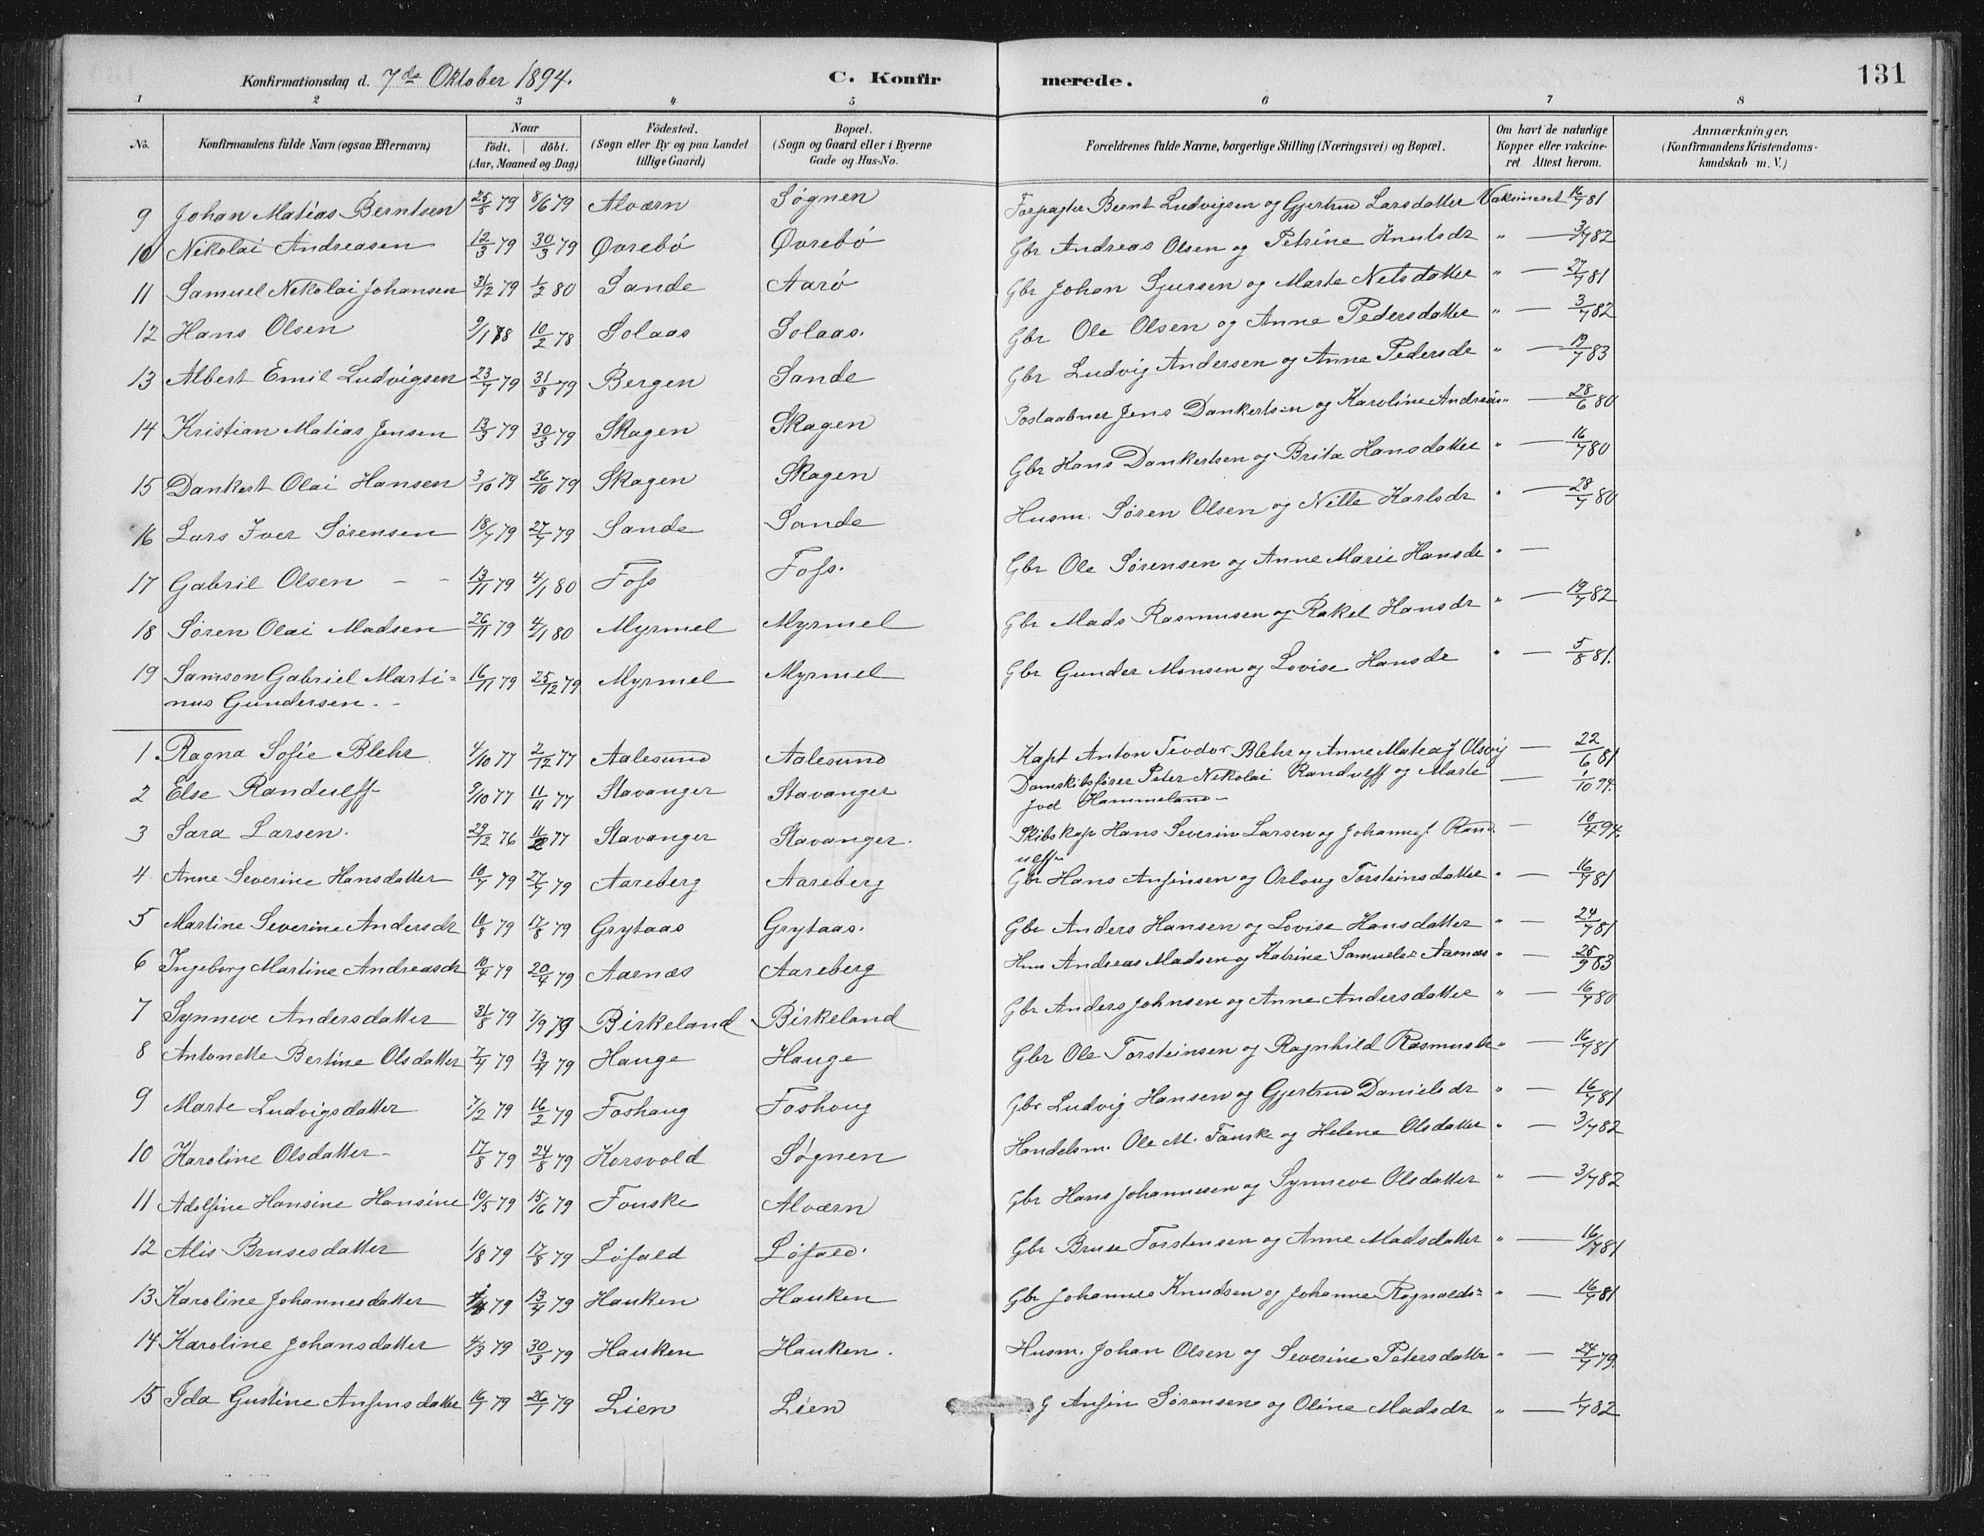 Konfirmationsdag d. 7de Oktober 1894. C. Konfirmerede. 131
1 2 3 4 5 6 7 8
No. Konfirmandens fulde Navn (ogsaa Efternavn) Naar født. døbt. (Aar, Maaned og Dag) Fødested. (Sogn eller By og paa Landet tillige Gaard) Bopæl. (Sogn og Gaard eller i Byerne Gade og Hus-No. Forældrenes fulde Navne, borgerlige Stilling (Næringsvei) og Bopæl. Om havt de naturlige Kopper eller vakcineret. Attest herom. Anmærkninger. (Konfirmandens Kristendomskundskab m. V.)
9 Johan Matias Berntsen 25/5 79 8/6 79 Alværn Søgnen Forpagter Bernt Ludvigsen og Gjertrud Larsdatter Vaksineret 16/7 81
10 Nikolai Andreasen 12/3 79 30/3 79 Øvrebø Øvrebø Gbr Andreas Olsen og Petrine Knutsdr " — 3/7 82
11 Samuel Nikolai Johansen 31/12 79 1/2 80 Sande Aarø Gbr Johan Sjursen og Marte Nelsdatter " — 27/7 81
12 Hans Olsen 9/1 78 10/2 78 Solaas Solaas. Gbr Ole Olsen og Anne Pedersdatter " — 3/7 82
13 Albert Emil Ludvigsen 23/7 79 31/8 79 Bergen Sande Gbr Ludvig Andersen og Anne Pedersde " — 19/7 83
14 Kristian Matias Jensen 13/3 79 30/3 79 Skagen Skagen Postaabner Jens Dankertsen og Karoline Andreas " — 28/6 80
15 Dankert Olai Hansen 3/10 79 26/10 79 Skagen Skagen Gbr Hans Dankertsen og Brita Hansdatter " — 16/7 80
16 Lars Iver Sørensen 18/7 79 27/7 79 Sande Sande Husm. Søren Olsen og Nille Karlsdr " — 28/7 80
17 Gabriel Olsen - - 13/11 79 4/1 80 Fofs Fofs. Gbr Ole Sørensen og Anne Marie Hansde " —
18 Søren Olai Madsen 26/11 79 4/1 80 Myrmel Myrmel Gbr Mads Rasmusen og Rakel Hansdr " — 19/7 82
19 Samson Gabriel Marti- 16/11 79 25/12 79 Myrmel Myrmel Gbr Gunder Monsen og Lovise Hansde " — 5/8 81.
nus Gundersen. -
1 Ragna Sofie Blehr 4/10 77 2/12 77 Aalesund Aalesund Kapt Anton Teodor Blehr og Anne Matea f Olsvig — 22/6 81
2 Else Randulff 9/10 77 11/11 77 Stavanger Stavanger Damskibsfører Peter Nikolai Randulff og Marte — 1/10 94.
fød Hammeland -
3 Sara Larsen. 29/12 76 77 Stavanger Stavanger. Skibskap Hans Severin Larsen og Johanne f. Rand — 10/4 94.
ulff
4 Anne Severine Hansdatter 10/7 79 27/7 79 Aareberg Aareberg Gbr Hans Ansinsen og Orloug Torsteinsdatter " — 16/7 81
5 Martine Severine Andersdr 10/8 79 17/8 79 Grytaas Grytaas. Gbr Anders Hansen og Lovise Hansdatter " — 24/7 81
6 Ingeborg Martine Andreasdr 10/4 79 20/4 79 Aarnæs Aareberg Hus Andreas Madsen og Katrine Samuelsd Aarnæs " — 25/9 83
7 Synneve Andersdatter 31/8 79 7/9 79 Birkeland Birkeland Gbr Anders Johnsen og Anne Andersdatter " — 16/7 80
8 Antonette Bertine Olsdatter 7/4 79 13/4 79 Hauge Hauge Gbr Ole Torsteinsen og Ragnhild Rasmusdr " — 16/7 81
9 Marte Ludvigsdatter 7/2 79 16/2 79 Foshaug Foshoug Gbr Ludvig Hansen og Gjertrud Danielsdr " — 16/7 81
10 Karoline Olsdatter - 17/8 79 24/8 79 Korsvold Søgnen Handelsm. Ole M. Fauske og Helene Olsdatter " — 3/7 82
11 Adolfine Hansine Hansine 10/5 79 15/6 79 Fouske Alværn Gbr Hans Johannesen og Synneve Olsdatter " — 3/7 82
12 Alis Brusesdatter 1/8 79 17/8 79 Løfald Løfald. Gbr Bruse Torstensen og Anne Madsdatter " — 16/7 81
13 Karoline Johannesdatter 79 13/4 79 Hauken Hauken Gbr Johannes Knudsen og Johanne Ragnalds- " — 16/7 81
14 Karoline Johansdatter 4/3 79 30/3 79 Hauken Hauken. Husm. Johan Olsen og Severine Petersdatter " — 24/7 79.
15 Ida Gustine Ansinsdatter 16/7 79 26/7 79 Lien Lien G Ansin Sørensen og Oline Madsdr " — 1/7 82